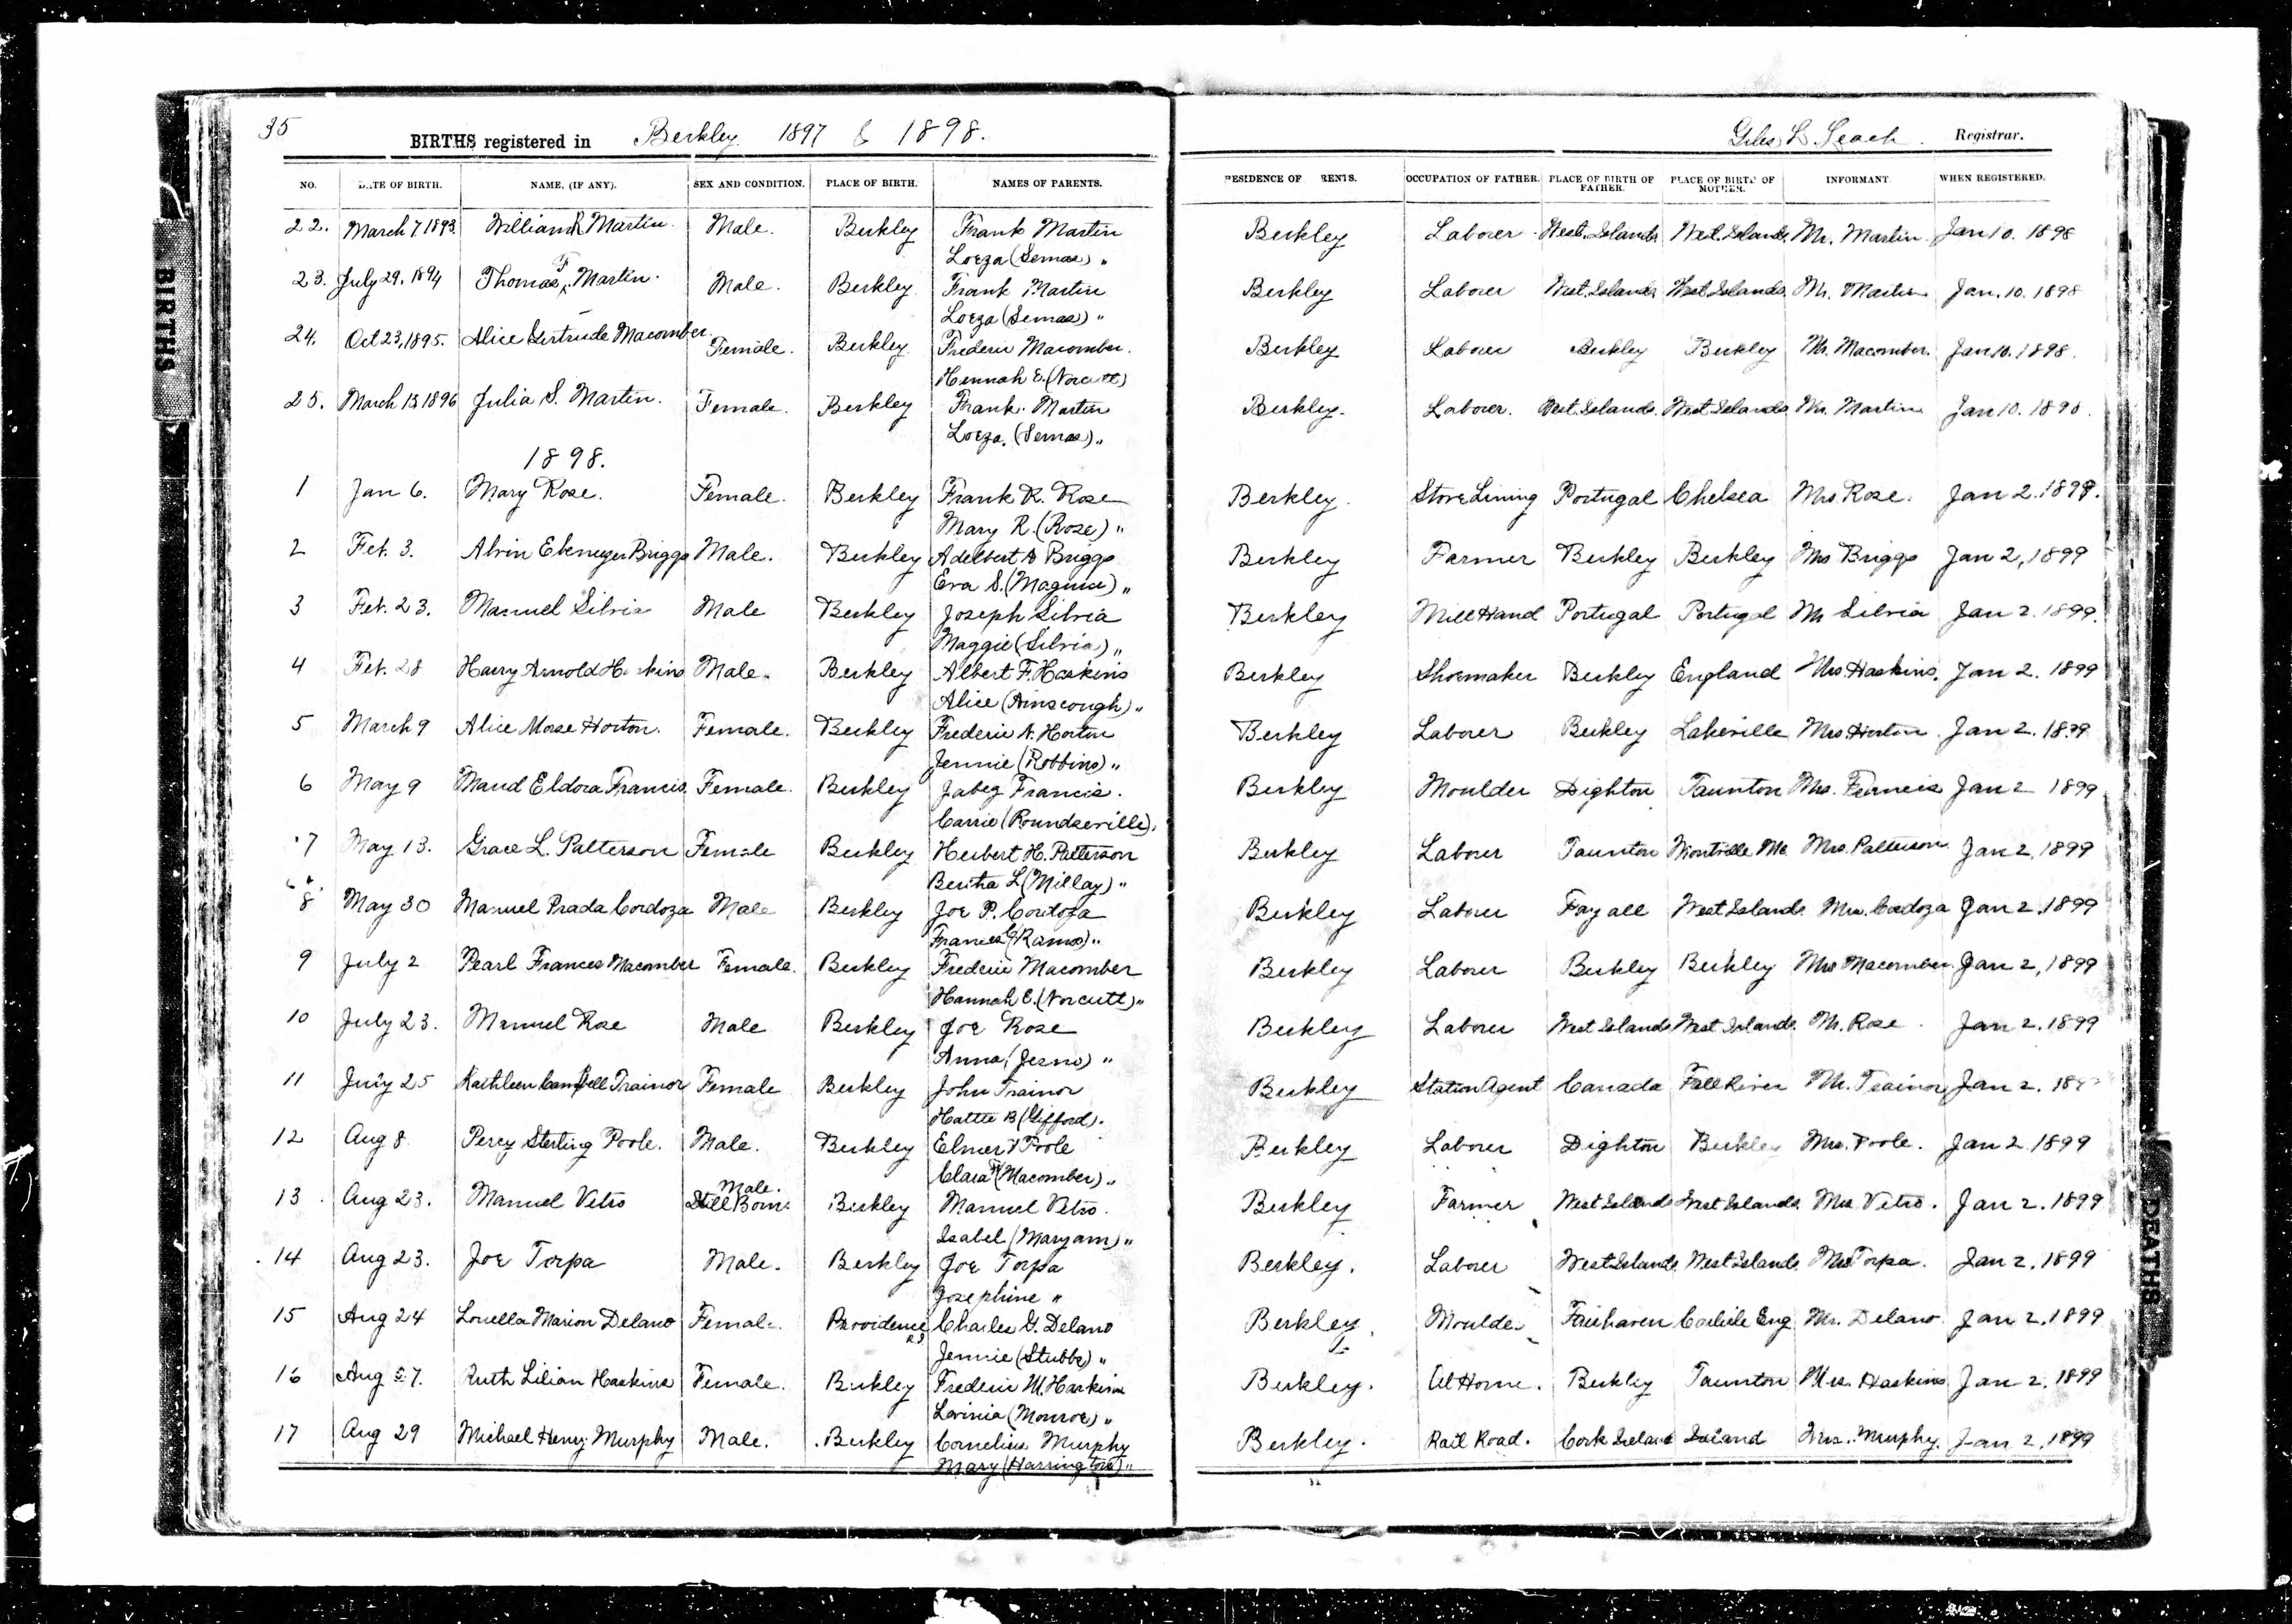 35
BIRTHS registered in Berkley 1897 & 1898.
Giles L. Leach. Registrar.
NO. DATE OF BIRTH. NAME, (IF ANY). SEX AND CONDITION. PLACE OF BIRTH. NAMES OF PARENTS. RESIDENCE OF RENTS. OCCUPATION OF FATHER. PLACE OF BIRTH OF FATHER. PLACE OF BIRTH OF MOTHER. INFORMANT. WHEN REGISTERED.
22. March 7, 1893 William R Martin. Male. Berkley Frank Martin Berkley Laborer West. Islands West. Islands Mr. Martin Jan 10. 1898
Loeza (Semas) "
23. July 29. 1894 Thomas F. Martin. Male. Berkley Frank Martin Berkley Laborer West. Islands West Islands Mr. Martin Jan. 10. 1898
Loeza (Semas) "
24. Oct 23, 1895. Alice Gertrude Macomber. Female. Berkley Frederic Macomber. Berkley Laborer Berkley Berkley Mr. Macomber. Jan 10. 1898.
Hannah E. (Norcutt)
25. March 13, 1896 Julia S. Martin. Female. Berkley Frank Martin Berkley. Laborer. West. Islands West Islands Mr. Martin Jan 10. 1898.
Loeza. (Semas) "
1898.
1 Jan 6. Mary Rose. Female. Berkley Frank R. Rose Berkley. Stove Lining Portugal Chelsea Mrs Rose. Jan 2. 1899.
Mary R. (Rose) "
2 Feb. 3. Alvin Ebenezer Briggs Male. Berkley Adelbert D Briggs Berkley Farmer Berkley Berkley Mrs Briggs Jan 2, 1899
Eva S. (Maguire) "
3 Feb. 23. Manuel Silvia Male Berkley Joseph Silvia Berkley Mill Hand Portugal Portugal Mr Silvia Jan 2. 1899.
Maggie (Silvia) "
4 Feb. 28 Harry Arnold Haskins Male. Berkley Albert F. Haskins Berkley Shoemaker Berkley England Mrs. Haskins. Jan 2. 1899
Alice (Ainscough) "
5 March 9 Alice Morse Horton. Female. Berkley Frederic N. Horton Berkley Laborer Berkley Lakeville Mrs. Horton. Jan 2. 1899
Jennie (Robbins) "
6 May 9 Maud Eldora Francis. Female. Berkley Jabez Francis. Berkley Moulder Dighton Taunton Mrs. Francis Jan 2 1899
Carrie (Roundseville).
7 May 13. Grace L. Patterson Female Berkley Herbert H. Patterson Berkley Laborer Taunton Montville Me Mrs. Patterson. Jan 2, 1899
Bertha L (Millay) "
8 May 30 Manuel Prada Cordoza Male Berkley Joe P. Cordoza Berkley Laborer Fayall West Islands Mrs. Cordoza Jan 2, 1899
Frances G (Ramos) "
9 July 2 Pearl Frances Macomber Female. Berkley Frederic Macomber Berkley Laborer Berkley Berkley Mrs Macomber Jan 2, 1899
Hannah E. (Norcutt) "
10 July 23. Manuel Rose Male Berkley Joe Rose Berkley Laborer West Islands West Islands. Mr. Rose. Jan 2. 1899
Anna (Jesno) "
11 July 25 Kathleen Campbell Trainor Female Berkley John Trainor Berkley Station Agent Canada Fall River Mr. Trainor Jan 2.
Hattie B (Gifford).
12 Aug 8 Percy Sterling Poole. Male. Berkley Elmer Poole Berkley Laborer Dighton Berkley Mrs. Poole. Jan 2 1899
Clara (Macomber) "
13 Aug 23. Manuel Vetro Male. Still Born. Berkley Manuel Vetro. Berkley Farmer West Islands West Islands. Mrs Vetro. Jan 2. 1899
Isabel (Maryam) "
14 Aug 23. Joe Torpa Male. Berkley Joe Torpa Berkley. Laborer West Islands West Islands. Mrs Torpa. Jan 2, 1899
Josephine "
15 Aug 24 Louella Marion Delano Female. Providence R.I Charles G. Delano Berkley Moulder Fairhaven Carlisle Eng Mr. Delano Jan 2, 1899
Jennie (Stubbs) "
16 Aug 27. Ruth Lilian Haskins Female. Berkley Frederic M. Haskins Berkley. At Home. Berkley Taunton Mrs. Haskins Jan 2, 1899
Lavinia (Monroe) "
17 Aug 29 Michael Henry Murphy Male. Berkley Cornelius Murphy Berkley. Rail Road. Cork Ireland Ireland Mrs. Murphy. Jan 2, 1899
Mary (Harrington) "
BIRTHS
DEATHS